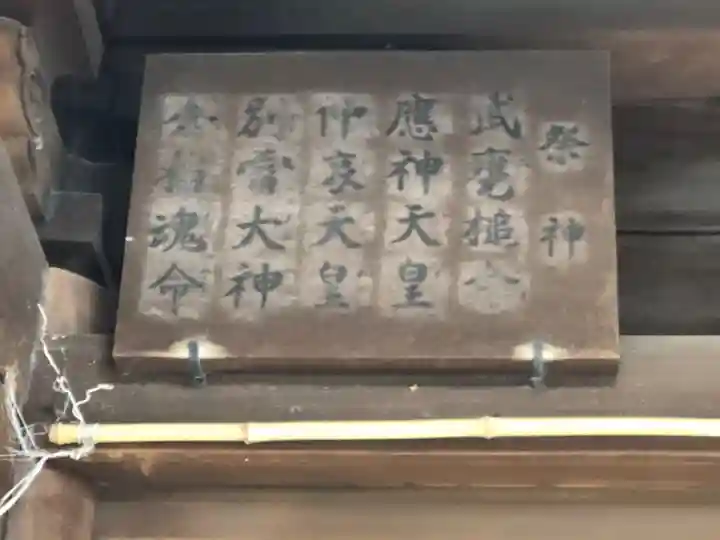 祭神
武甕槌命
應神天皇
仲哀天皇
別雷大神
魂命